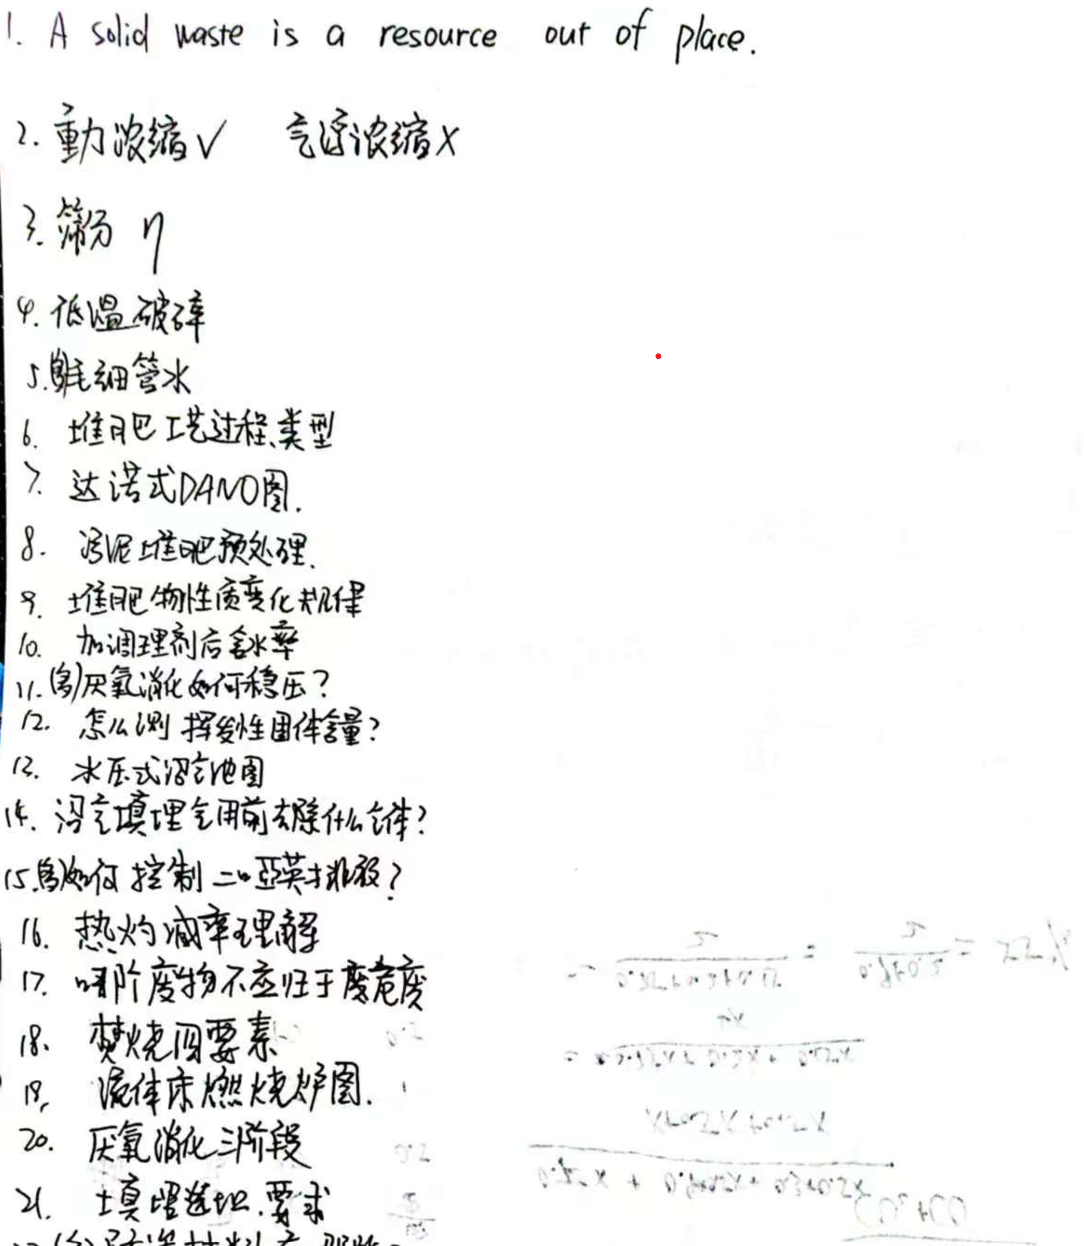 1. A solid waste is a resource out of place.
2. 重力浓缩√ 气浮浓缩X
3. 筛分 η
4. 低温破碎
5. 毛细管水
6. 堆肥工艺过程、类型
7. 达诺式DANO图.
8. 污泥堆肥预处理.
9. 堆肥物性质变化规律
10. 加调理剂后含水率
11. (多)厌氧消化如何稳压?
12. 怎么测挥发性固体含量?
13. 水压式沼气池图
14. 沼气填埋气用前去除什么气体?
15. (多)如何控制二噁英排放?
16. 热灼减率理解
17. 哪阶废物不应归于危废
18. 焚烧四要素
19. 流体床燃烧炉图.
20. 厌氧消化三阶段
21. 填埋选址.要求